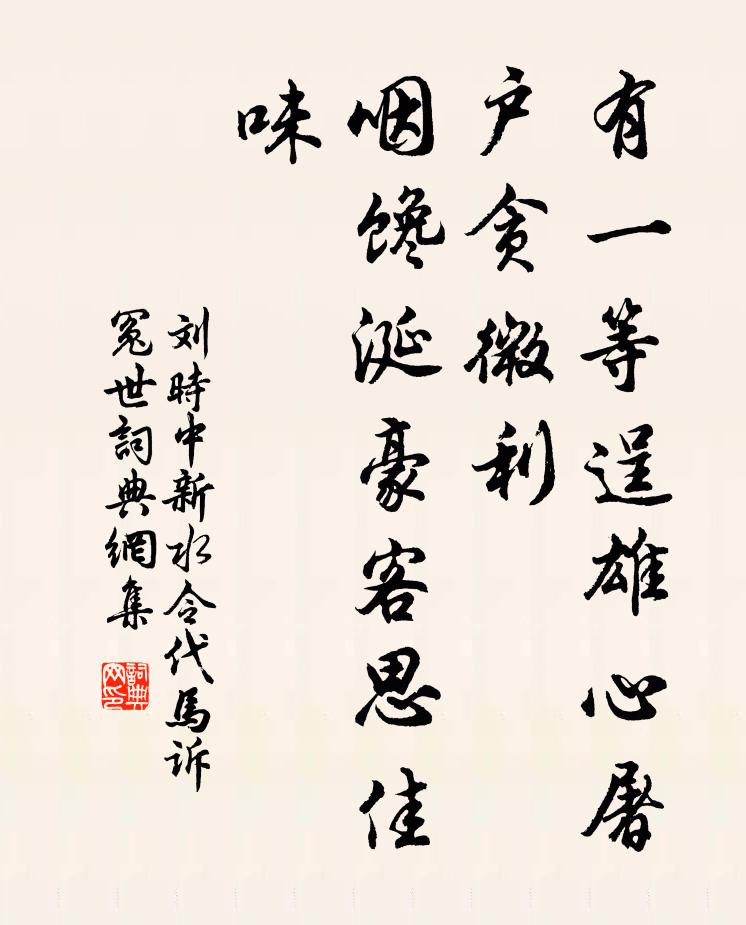 有一等逞雄心屠
户贪微利
咽馋涎豪客思佳
味
刘時中新水令代馬诉
冤世詞典網集
詞典网印